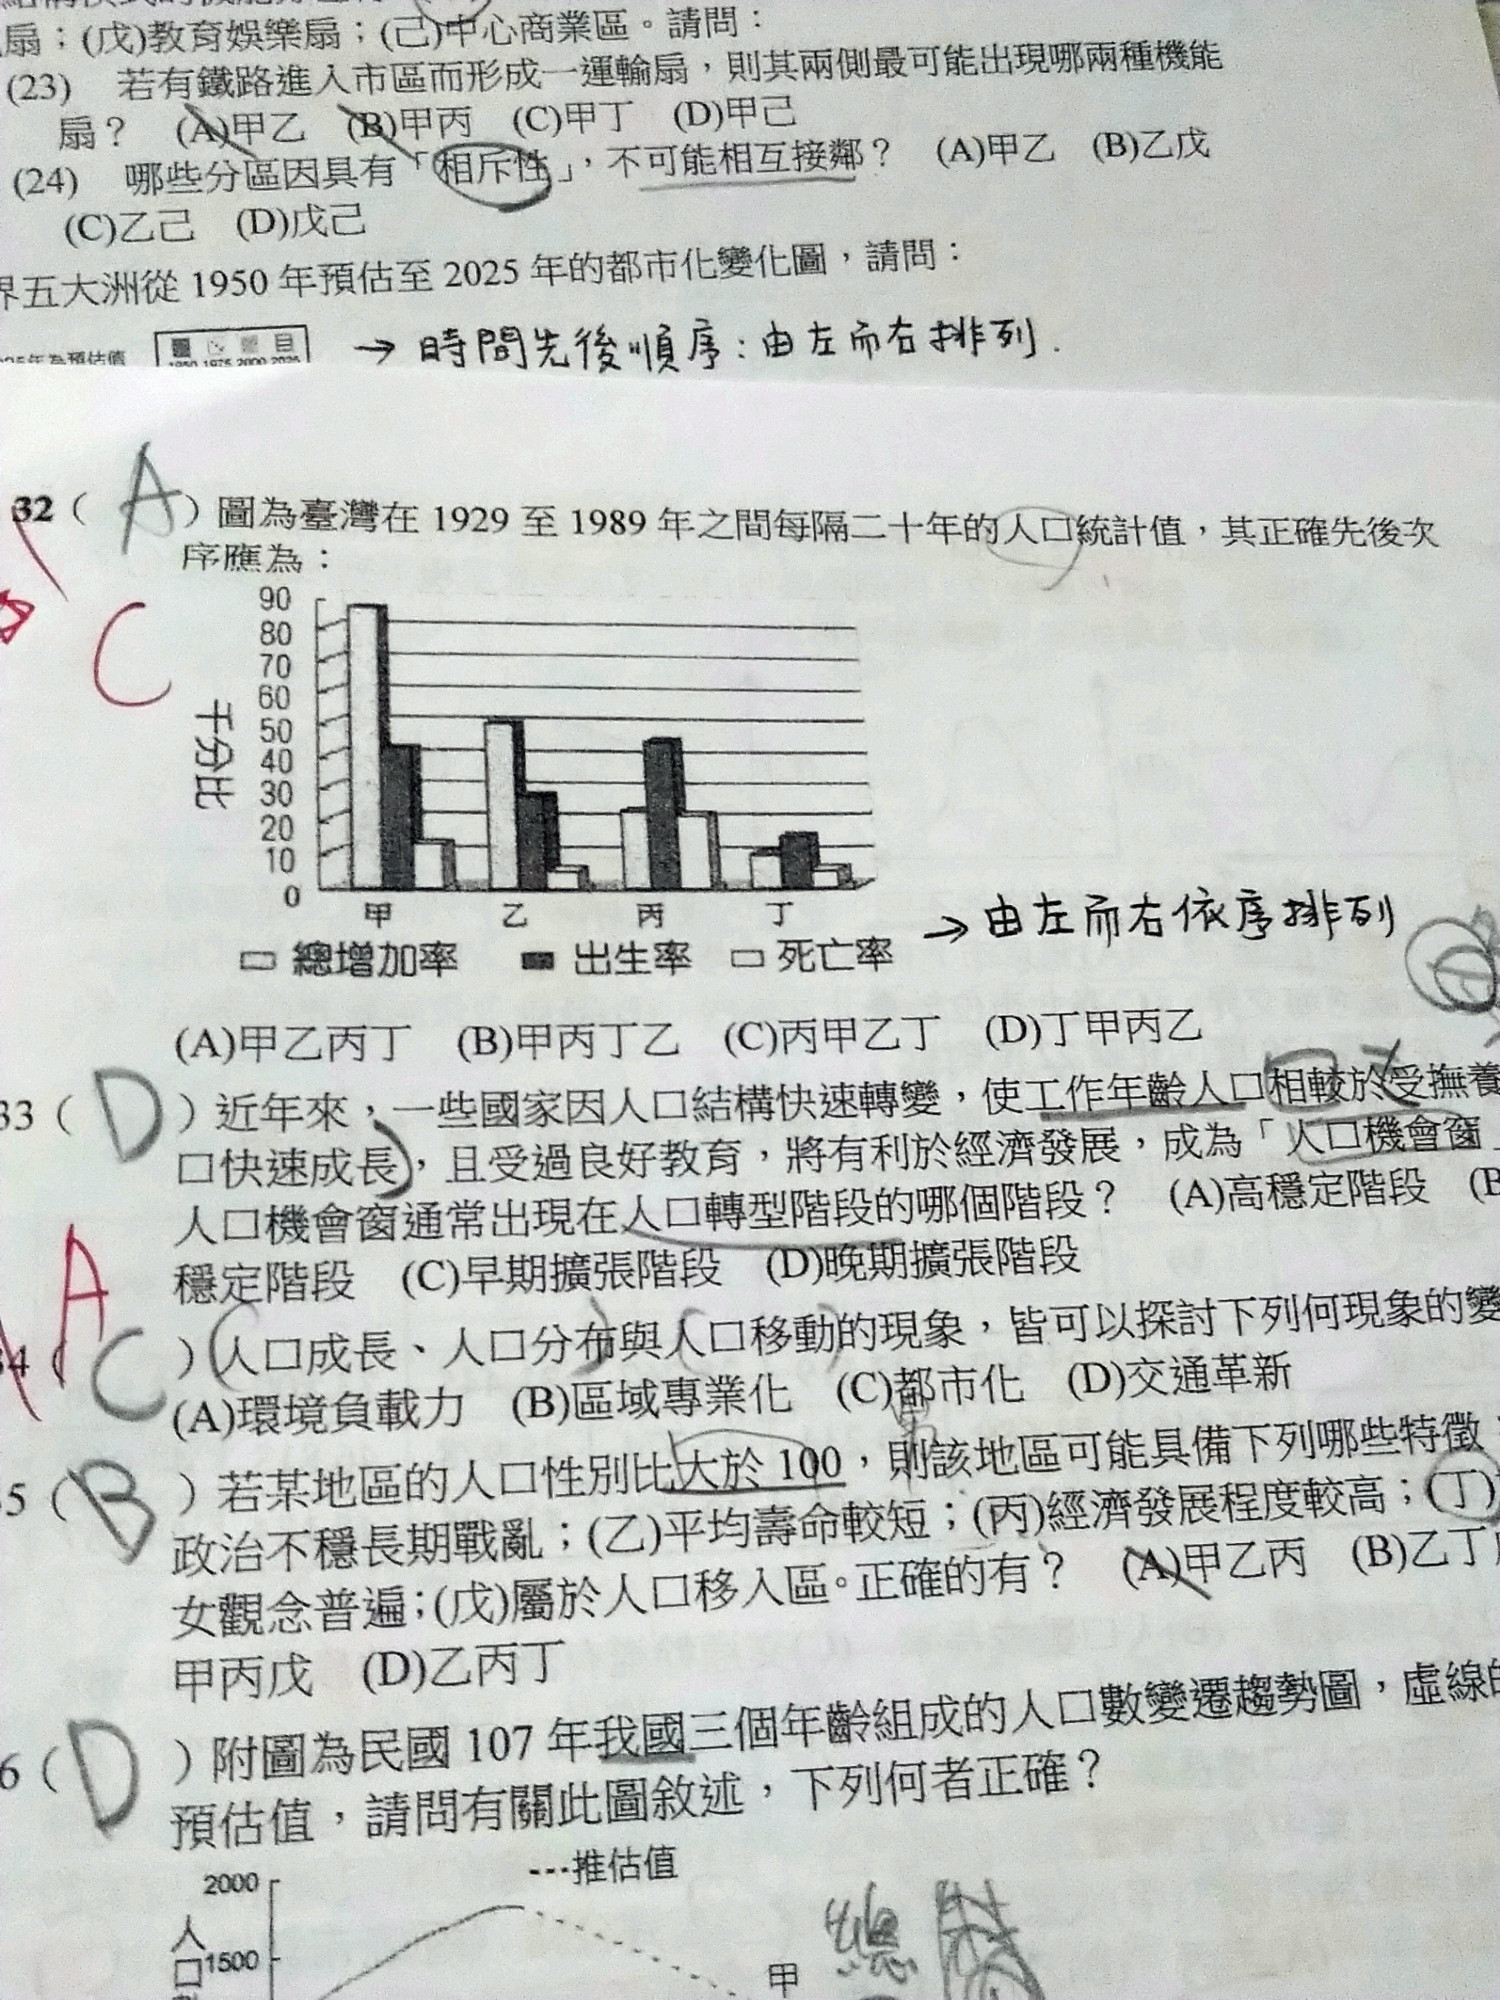 扇；(戊)教育娛樂扇；(己)中心商業區。請問：
(23) 若有鐵路進入市區而形成一運輸扇，則其兩側最可能出現哪兩種機能
扇？ (A)甲乙 (B)甲丙 (C)甲丁 (D)甲己
(24) 哪些分區因具有「相斥性」，不可能相互接鄰？ (A)甲乙 (B)乙戊
(C)乙己 (D)戊己
界五大洲從 1950 年預估至 2025 年的都市化變化圖，請問：
25年為預估值
1950 1975 2000 2025
→ 時間先後順序：由左而右排列.
32 ( A ) 圖為臺灣在 1929 至 1989 年之間每隔二十年的人口統計值，其正確先後次
序應為：
C
千分比
90
80
70
60
50
40
30
20
10
0
甲 乙 丙 丁
總增加率 出生率 死亡率
→ 由左而右依序排列
(A)甲乙丙丁 (B)甲丙丁乙 (C)丙甲乙丁 (D)丁甲丙乙
33 ( D ) 近年來，一些國家因人口結構快速轉變，使工作年齡人口相較於受撫養
口快速成長，且受過良好教育，將有利於經濟發展，成為「人口機會窗」
人口機會窗通常出現在人口轉型階段的哪個階段？ (A)高穩定階段 (B
穩定階段 (C)早期擴張階段 (D)晚期擴張階段
A
34 ( C ) 人口成長、人口分布與人口移動的現象，皆可以探討下列何現象的變
(A)環境負載力 (B)區域專業化 (C)都市化 (D)交通革新
5 ( B ) 若某地區的人口性別比大於 100，則該地區可能具備下列哪些特徵
政治不穩長期戰亂；(乙)平均壽命較短；(丙)經濟發展程度較高；(丁)
女觀念普遍；(戊)屬於人口移入區。正確的有？ (A)甲乙丙 (B)乙丁
甲丙戊 (D)乙丙丁
6 ( D ) 附圖為民國 107 年我國三個年齡組成的人口數變遷趨勢圖，虛線的
預估值，請問有關此圖敘述，下列何者正確？
---推估值
2000
人口
1500
甲
總